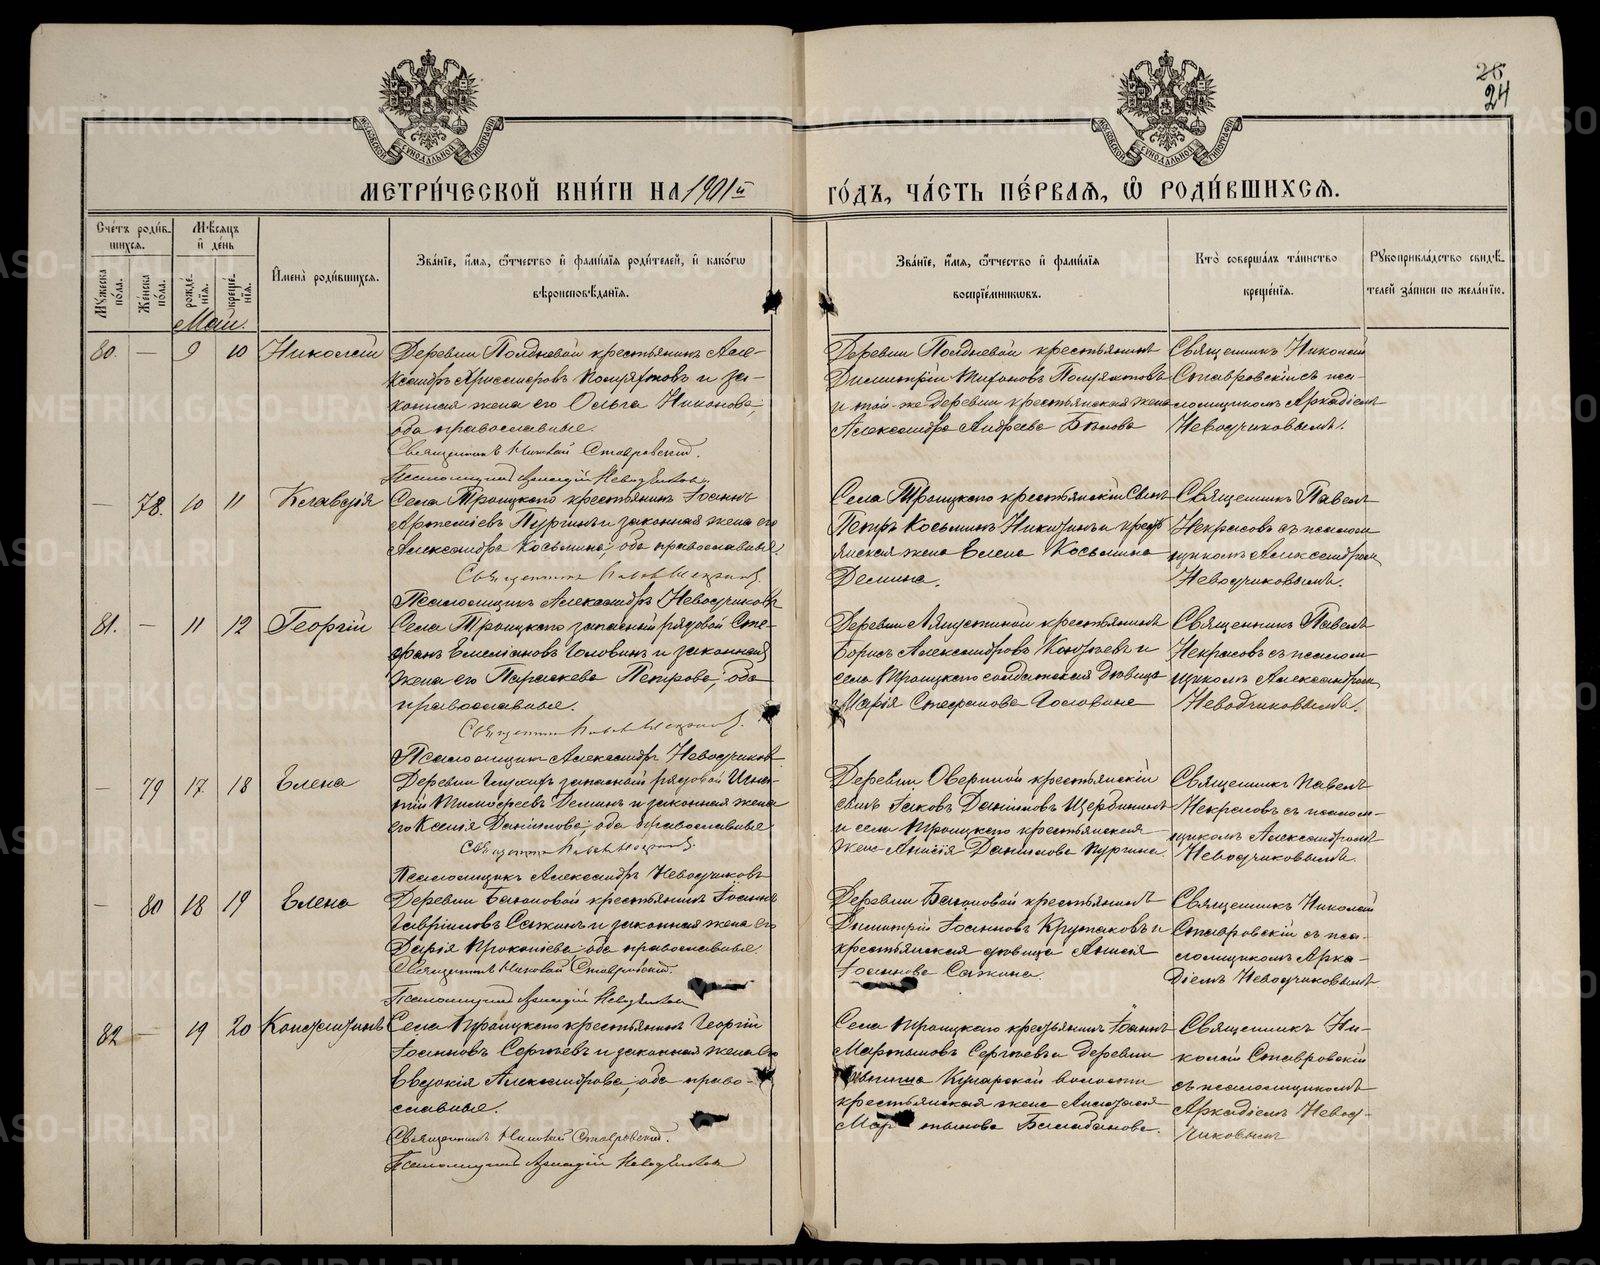 26
24
МОСКОВСКОЙ СѴНОДАЛЬНОЙ ТИПОГРАФІИ
МОСКОВСКОЙ СѴНОДАЛЬНОЙ ТИПОГРАФІИ
МЕТРИ́ЧЕСКОЙ КНИ́ГИ НА 1901й
ГО́ДЪ, ЧА́СТЬ ПЕ́РВАЯ, Ѽ РОДИ́ВШИХСЯ.
Сче́тъ роди́в-
шихся.
Мꙋжеска по́ла.
Же́нска по́ла.
Мѣ́сяцъ
и҆ де́нь
рожде́-
нїя.
креще́-
нїя.
И҆мена̀ роди́вшихся.
Зва́нїе, и҆́мя, ѻ҆́тчество и҆ фами́лїя роди́телей, и҆ како́гѡ
вѣроисповѣ́данїя.
Зва́нїе, и҆́мя, ѻ҆́тчество и҆ фами́лїя
воспрїе́мниковъ.
Кто̀ соверша́лъ та́инство
креще́нїя.
Рꙋкоприкла́дство свидѣ́-
телей за́писи по жела́нїю.
Май.
80. — 9 10 Николай
Деревни Полдневой крестьянинъ Але-
ксандръ Хрисанфовъ Помряковъ и за-
конная жена его Ольга Никонова,
оба православные.
Священникъ Николай Ставровскій.
Псаломщикъ Аркадій Неводчиковъ
Деревни Полдневой крестьянинъ
Димитрій
и той-же деревни крестьянская жена
Александра Андреева Бѣлова
Священникъ Николай
Ставровскій съ пса-
ломщикомъ Аркадіемъ
Неводчиковымъ.
— 78. 10 11 Клавдія
Села Троицкаго крестьянинъ Іоаннъ
Артеміевъ Пургинъ и законная жена его
Александра Косьмина, оба православные.
Священникъ Павелъ Некрасовъ.
Псаломщикъ Александръ Неводчиковъ
Села Троицкаго крестьянскій сынъ
Петръ Косьминъ Никитинъ и кресть
янская жена Елена Косьмина
Демина.
Священникъ Павелъ
Некрасовъ съ псалом
щикомъ Александромъ
Неводчиковымъ.
81. — 11 12 Георгій
Села Троицкаго запасный рядовой Сте-
фанъ Емеліановъ Головинъ и законная
жена его Параскева Петрова, оба
православные.
Священникъ Павелъ Некрасовъ.
Псаломщикъ Александръ Неводчиковъ
Деревни крестьянинъ
Борисъ Александровъ и
села Троицкаго солдатская дѣвица
Марія Стефанова Головина
Священникъ Павелъ
Некрасовъ съ псалом-
щикомъ Александромъ
Неводчиковымъ.
— 79 17 18 Елена
Деревни запасный рядовой Игна-
тій Тимофеевъ Деминъ и законная жена
его Ксенія Данилова, оба православные
Священникъ Павелъ Некрасовъ.
Псаломщикъ Александръ Неводчиковъ
Деревни Овериной крестьянскій
сынъ Іаковъ Даніиловъ Щербининъ
и села Троицкаго крестьянская
жена Анисія Данилова Пургина.
Священникъ Павелъ
Некрасовъ съ псалом-
щикомъ Александромъ
Неводчиковымъ.
— 80 18 19 Елена
Деревни крестьянинъ Іоаннъ
Гавріиловъ Сажинъ и законная жена его
Дарія Прокопіева, оба православные.
Священникъ Николай Ставровскій.
Псаломщикъ Аркадій Неводчиковъ
Деревни крестьянинъ
Димитрій Іоанновъ Крутаковъ и
крестьянская дѣвица Анисія
Іоаннова Сажина.
Священникъ Николай
Ставровскій съ пса-
ломщикомъ Арка-
діемъ Неводчиковымъ
82 — 19 20 Константинъ
Села Троицкаго крестьянинъ Георгій
Іоанновъ Сергѣевъ и законная жена его
Евдокія Александрова, оба право-
славные.
Священникъ Николай Ставровскій.
Псаломщикъ Аркадій Неводчиковъ
Села Троицкаго крестьянинъ Іоаннъ
Мартыновъ Сергѣевъ и деревни
Кунарской волости
крестьянская жена Анастасія
Мартынова Балабанова.
Священникъ Ни-
колай Ставровскій
съ псаломщикомъ
Аркадіемъ Невод-
чиковымъ
METRIKI.GASO-URAL.RU